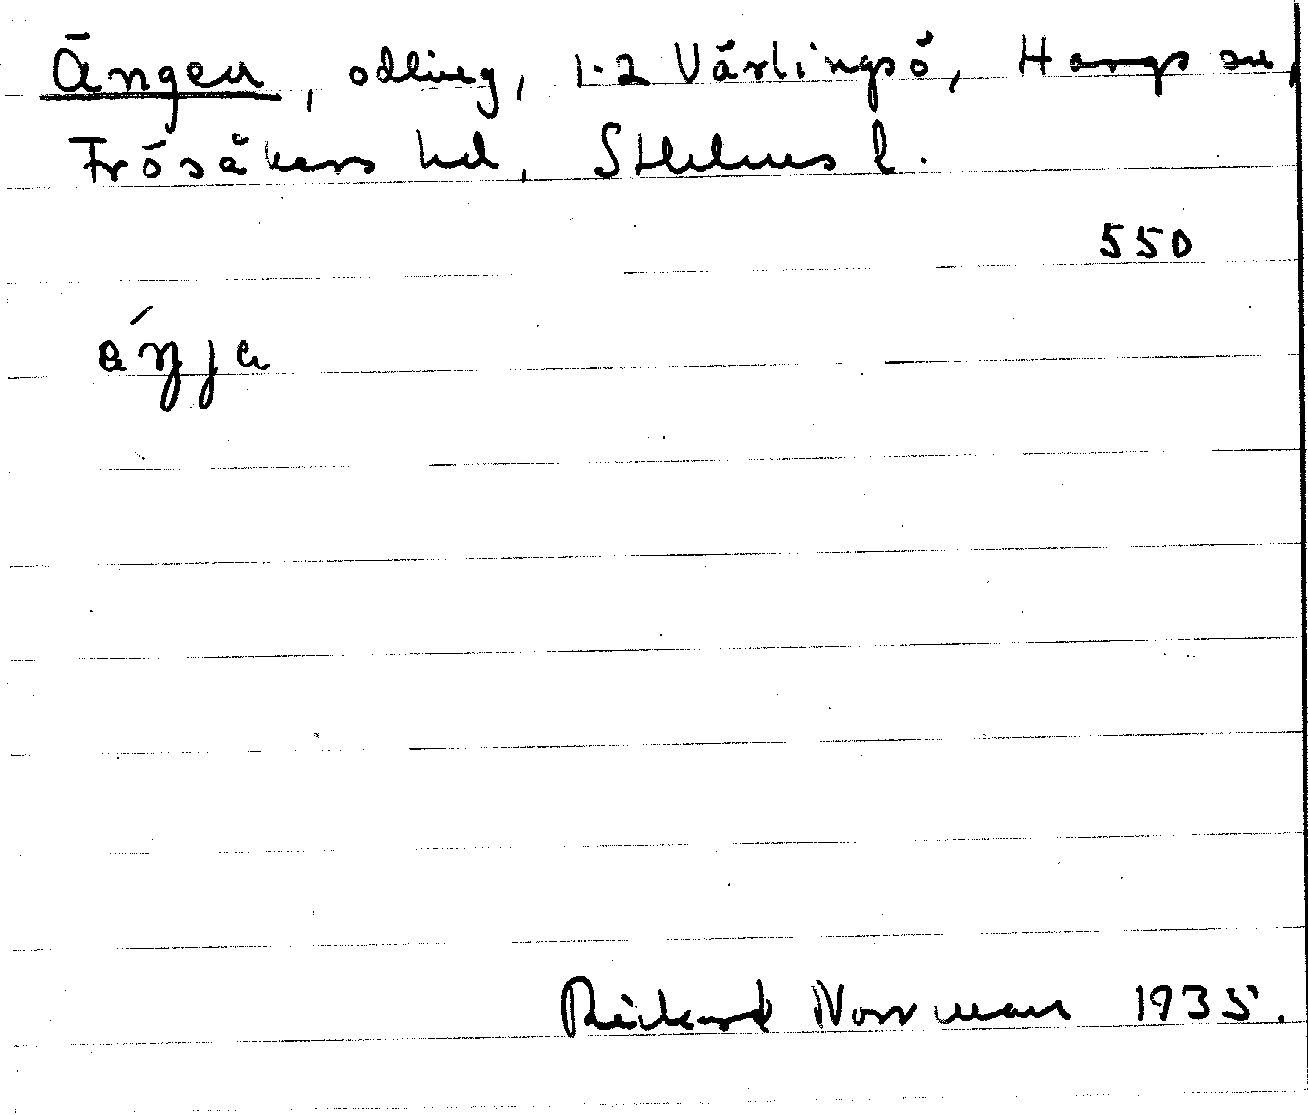 Ängen, odling, 1-2 Värlingsö, Hargs sn,
Frösåkers hd, Sthlms l.
550
áŋja
Rickard Norrman 1935.